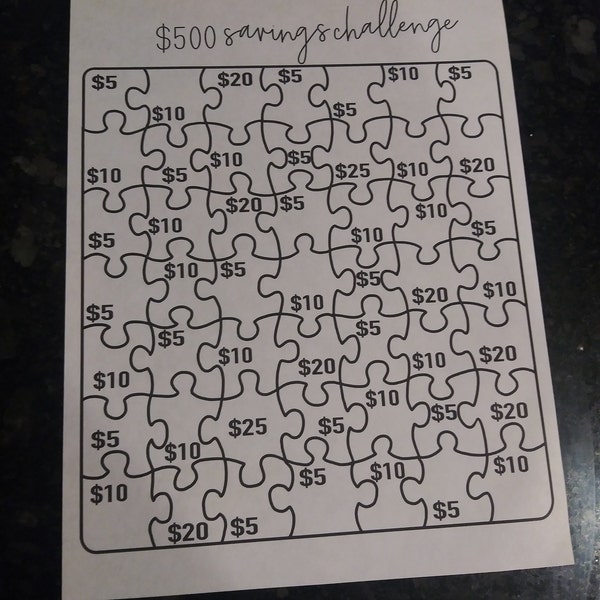 $500 savings challenge
$5 $10 $20 $5 $5 $10 $5
$10 $5 $10 $5 $25 $10 $20
$5 $10 $20 $5 $10 $10 $5
$5 $10 $5 $10 $5 $20 $10
$10 $5 $10 $20 $5 $10 $20
$5 $10 $25 $5 $10 $5 $20
$10 $20 $5 $5 $10 $5 $10